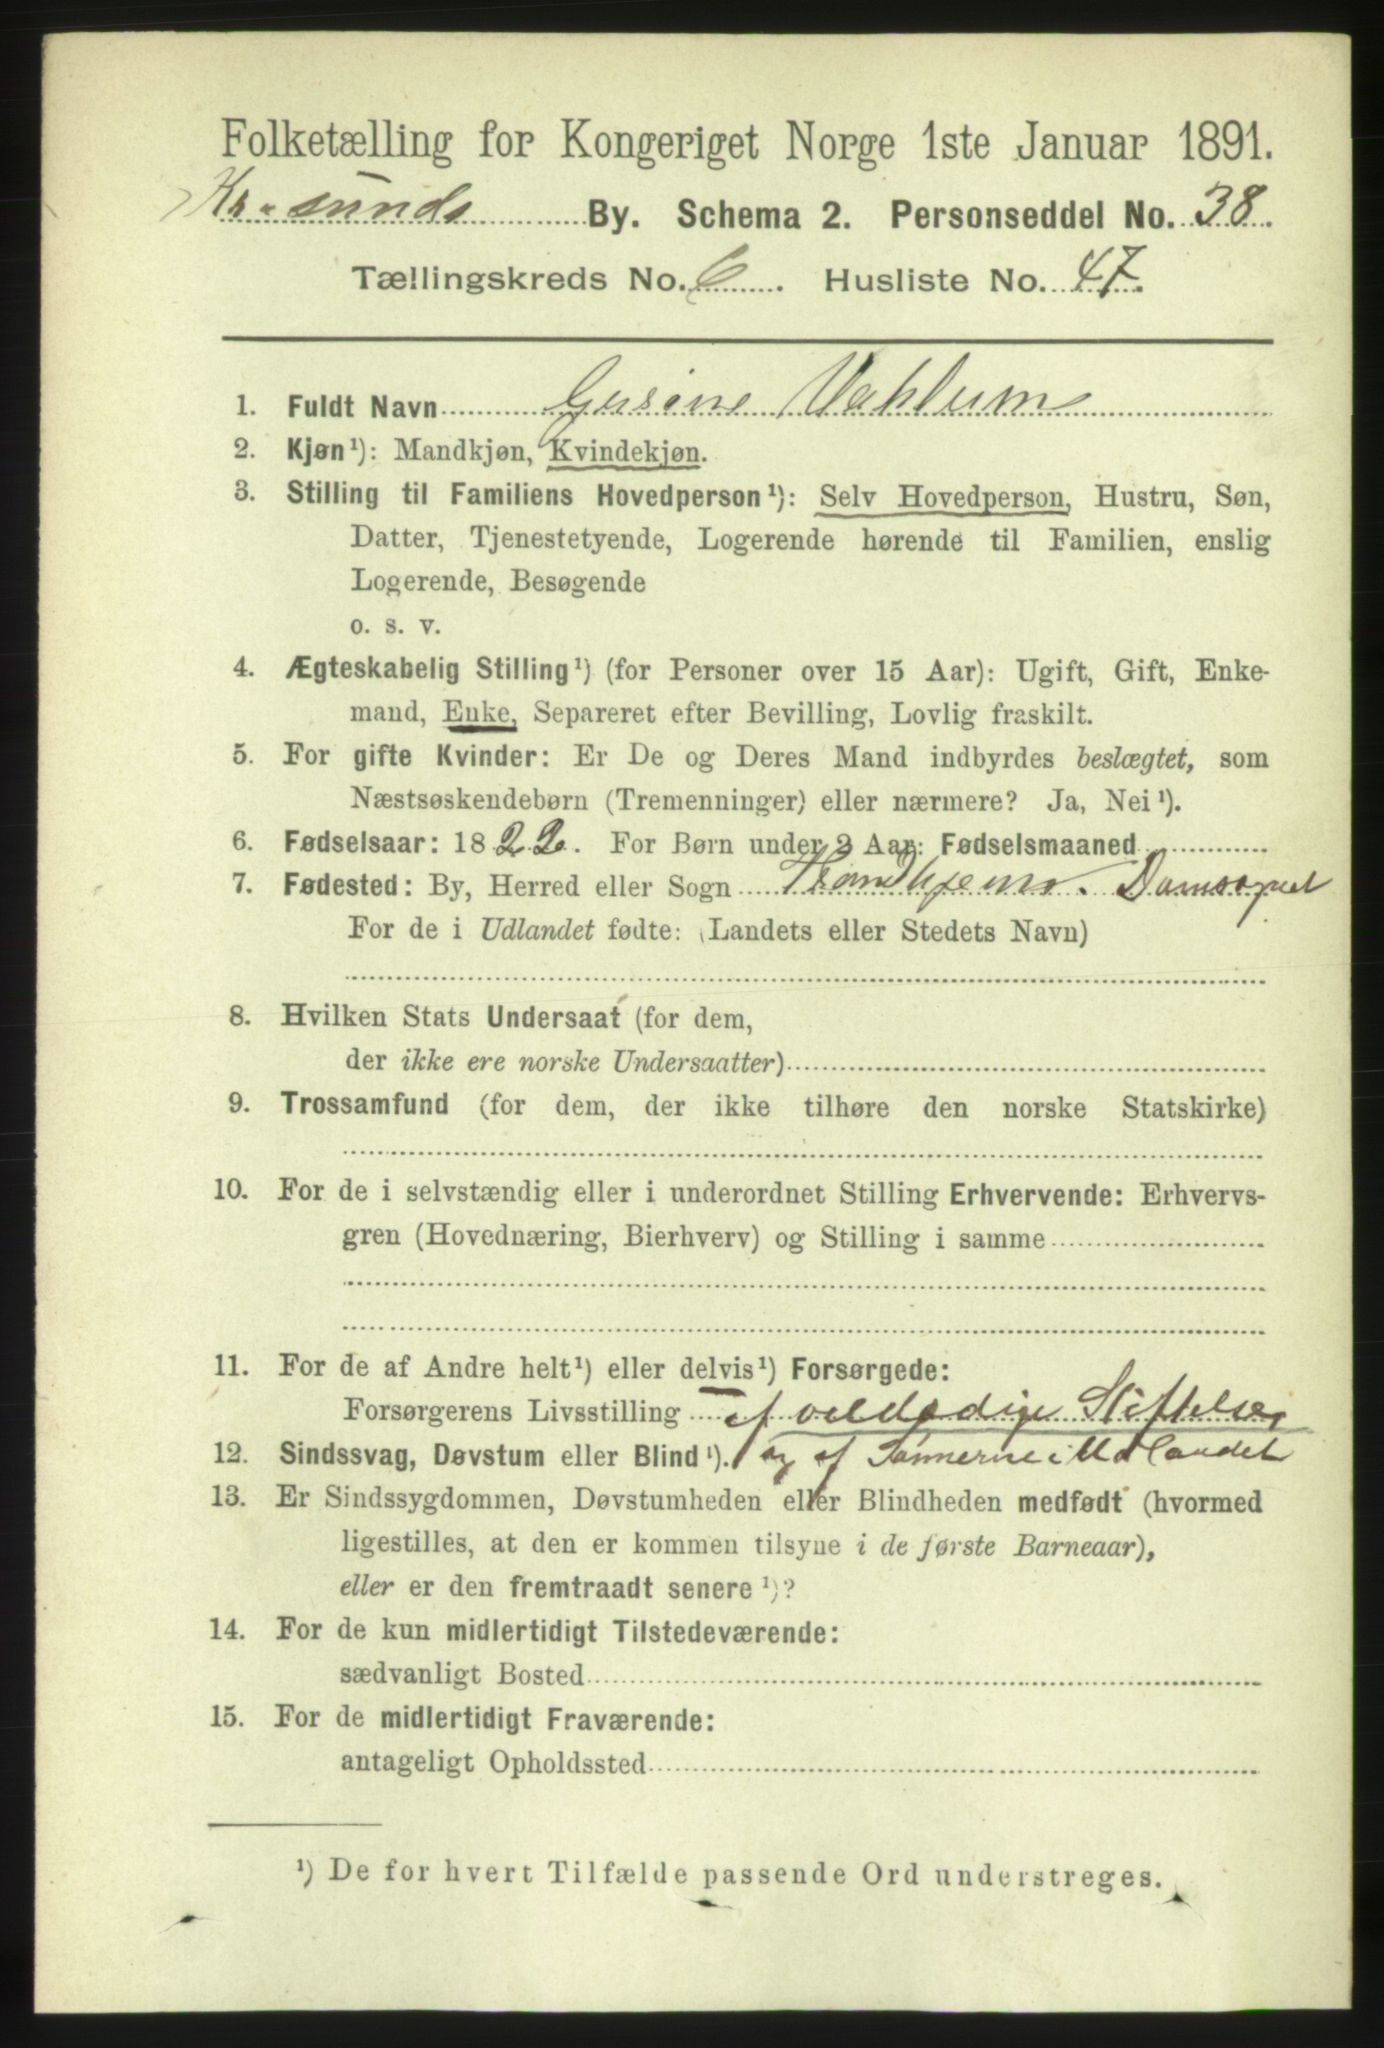 Folketælling for Kongeriget Norge 1ste Januar 1891.
Kr.sunds By. Schema 2. Personseddel No. 38.
Tællingskreds No. 6. Husliste No. 47.
1. Fuldt Navn Gusine Vahlum
2. Kjøn¹): Mandkjøn, Kvindekjøn.
3. Stilling til Familiens Hovedperson¹): Selv Hovedperson, Hustru, Søn,
Datter, Tjenestetyende, Logerende hørende til Familien, enslig
Logerende, Besøgende
o. s. v.
4. Ægteskabelig Stilling¹) (for Personer over 15 Aar): Ugift, Gift, Enke-
mand, Enke, Separeret efter Bevilling, Lovlig fraskilt.
5. For gifte Kvinder: Er De og Deres Mand indbyrdes beslægtet, som
Næstsøskendebørn (Tremenninger) eller nærmere? Ja, Nei¹).
6. Fødselsaar: 1822. For Børn under 2 Aar: Fødselsmaaned
7. Fødested: By, Herred eller Sogn Trondhjems. Domsognet
For de i Udlandet fødte: (Landets eller Stedets Navn)
8. Hvilken Stats Undersaat (for dem,
der ikke ere norske Undersaatter)
9. Trossamfund (for dem, der ikke tilhøre den norske Statskirke)
10. For de i selvstændig eller i underordnet Stilling Erhvervende: Erhvervs-
gren (Hovednæring, Bierhverv) og Stilling i samme
11. For de af Andre helt¹) eller delvis¹) Forsørgede:
Forsørgerens Livsstilling af veldædige Stiftelser
12. Sindssvag, Døvstum eller Blind¹). og af Sønnerne i Udlandet
13. Er Sindssygdommen, Døvstumheden eller Blindheden medfødt (hvormed
ligestilles, at den er kommen tilsyne i de første Barneaar),
eller er den fremtraadt senere¹)?
14. For de kun midlertidigt Tilstedeværende:
sædvanligt Bosted
15. For de midlertidigt Fraværende:
antageligt Opholdssted
¹) De for hvert Tilfælde passende Ord understreges.